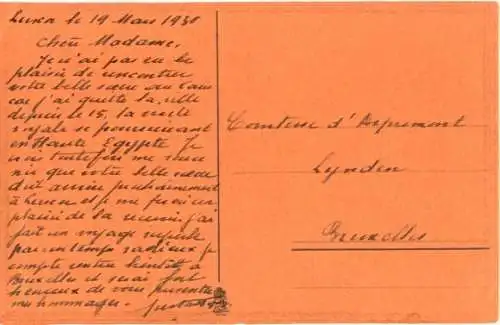 le 19 Mars 1930
Chère Madame,
Je n'ai pas eu le
plaisir de rencontrer
votre belle sœur au Caire
car j'ai quitté la ville
depuis le 15, la visite
royale se poursuivant
en Haute Egypte. Je
que votre belle sœur
doit arriver prochainement
à et je me fais un
plaisir de la j'ai
fait un voyage superbe
par un temps radieux je
compte rentrer bientôt à
Bruxelles et serai fort
heureux de vous présenter
mes hommages.
Comtesse d'Aspremont
Lynden
Bruxelles